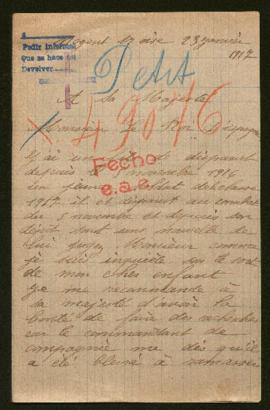 Pedir informes
que se hace
Devolver
Nogent s/ oise 23 janvier
1917
Petit
A sa Majesté
49076
Monsieur Le Roi d'Espagne
J'ai un fils disparut
depuis le 5 novembre 1916
Fecho
e.a.e.
un jeune soldat de la classe
1917 il et disparut au combat
du 5 novembre et depuis son
sans nouvelle de
lui jugez Monsieur comme
je suis inquiète sur le sort
de mon cher enfant
je me recommande à
sa majesté d'avoir la
bonté de faire des recherches
car le commandant de
compagnie me dis qu'il
a été blessé à